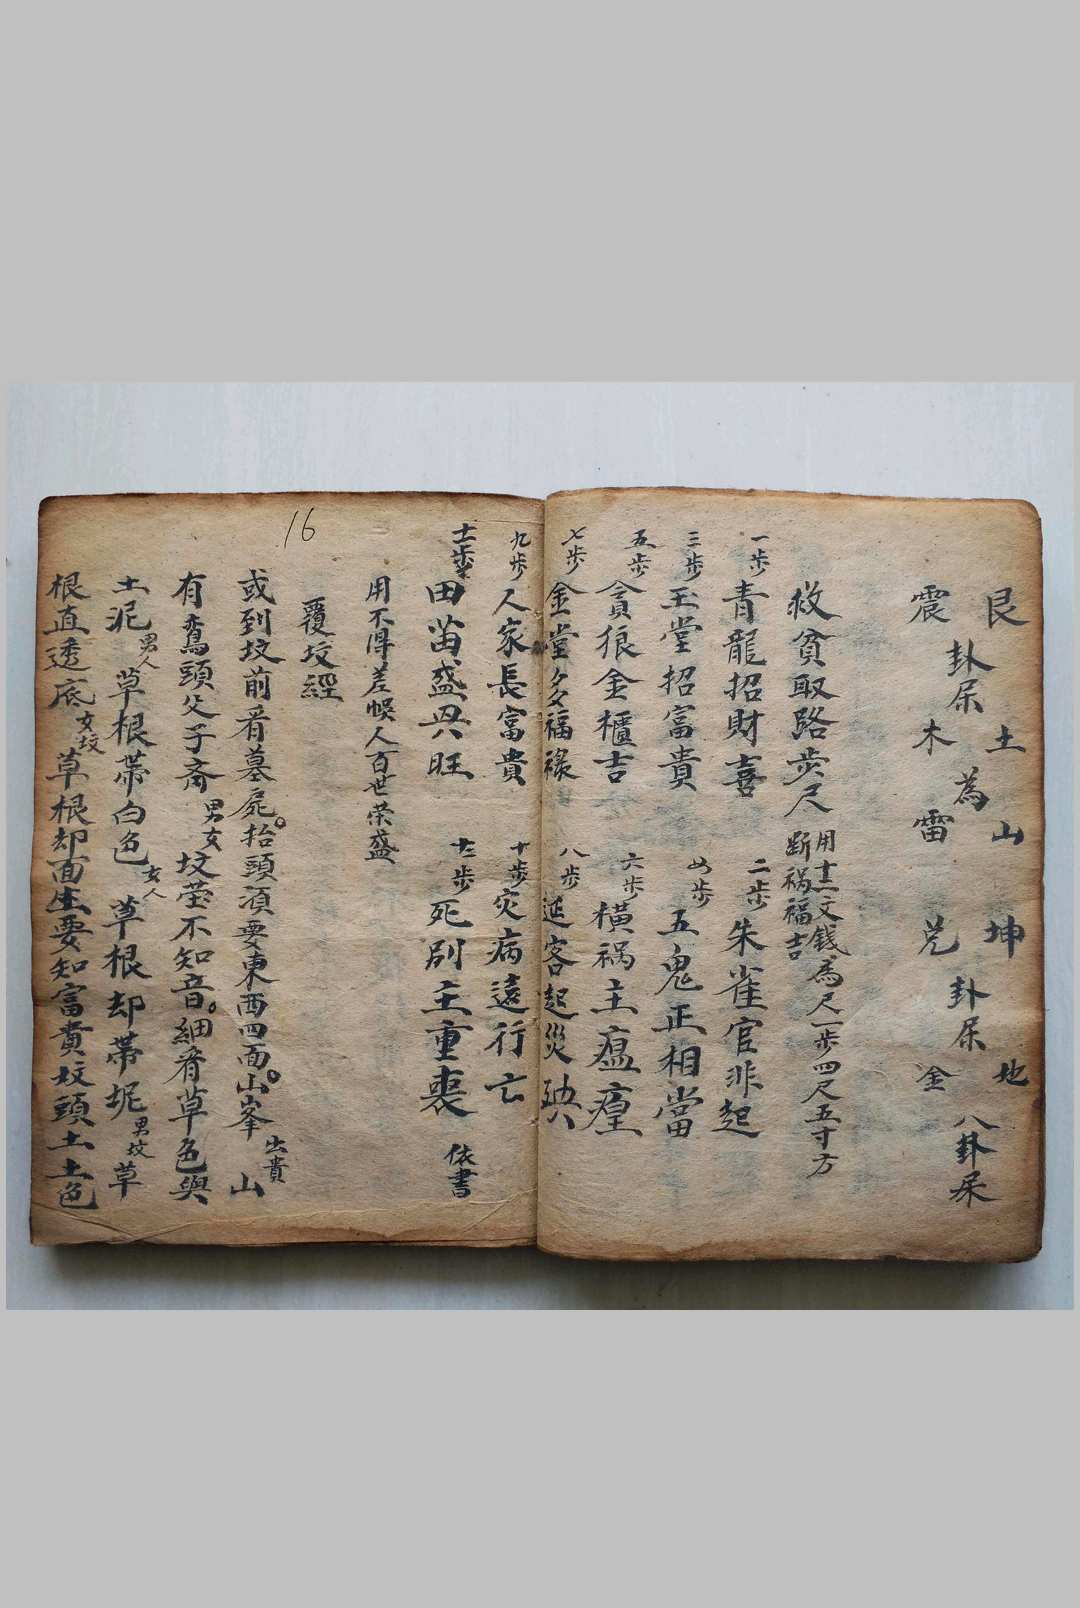 艮 土 山 坤 地
卦屎 為 卦屎 八卦屎
震 木 雷 兌 金
救貧取路步尺 用十二文錢為尺一步四尺五寸方
断祸福吉
一步 青龍招財喜 二步 朱雀官非起
三步 玉堂招富貴 四步 五鬼正相當
五步 貪狼金櫃吉 六步 橫祸主瘟㾮
七步 金堂多福祿 八步 延客起災殃
九步 人家長富貴 十步 灾病遠行亡
十一步 田苗盛興旺 十二步 死別主重喪 依書
用不得差悞人百世荣盛
16
覆坟經
或到坟前看墓屍。抬頭須要東西四面。山峯出貴 山
有鸞頭父子齋 男女坟茔不知音。細看草色與
土泥 男人 草根帶白色 女人 草根却帶坭 男坟 草
根直透底 女坟 草根却面生要知富貴坟頭土土色